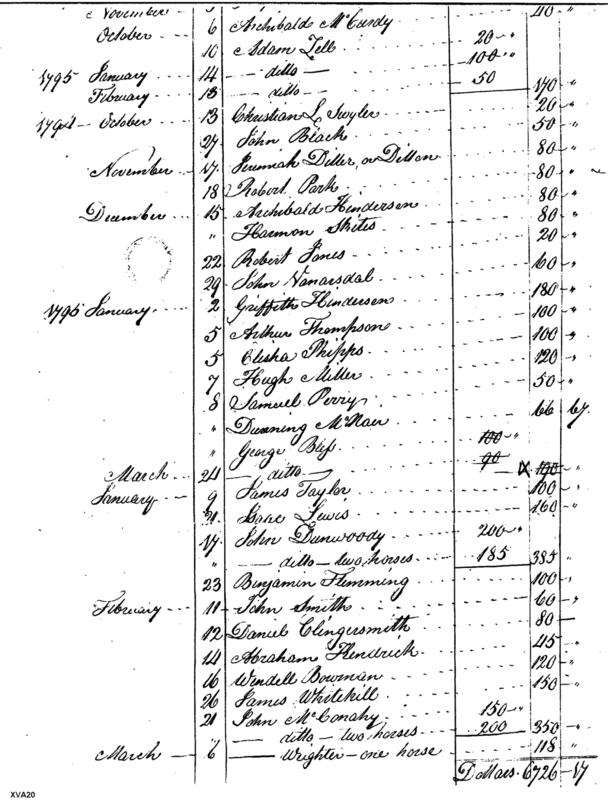 November 5 40 "
October 6 Archibald McCurdy
10 Adam Zell 20 "
1795 January 14 — ditto — 100 "
February 13 — ditto — 50 170 "
1794 October 13 Christian L Swyler 20 "
27 John Black 50 "
November 17 Jeremiah Diller, or Dillon 80 "
18 Robert Park 80 "
December 15 Archibald Henderson 80 "
" Harmon Skites 80 "
22 Robert Jones 20 "
29 John Vanarsdal 60 "
1795 January 2 Griffith Henderson 180 "
5 Arthur Thompson 100 "
5 Elisha Phipps 100 "
7 Hugh Miller 120 "
8 Samuel Perry 50 "
" Dunning McNair 66 67
" George Bless 100 "
March 24 — ditto — 90 X 190 "
January 9 James Taylor 100 "
Lewis 160 "
17 John Dunwoody 200 "
" ditto — two horses 185 385 "
23 Benjamin Flemming 100 "
February 11 John Smith 60 "
12 Daniel Clingersmith 80 —
14 Abraham Hendrick 45 "
16 Wendell Bowman 120 "
26 James Whitehill 150 "
21 John McConahy 150 "
ditto — two horses 200 350 "
March 6 — Wrighter — one horse 118 "
Dollars. 6726 — 17
XVA20